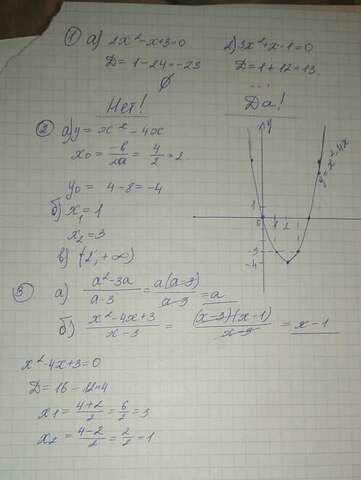 ① а) 2x²-x+3=0
D=1-24=-23
∅
Нет!
2) 3x²+x-1=0
D=1+12=13
...
Да!
② а) y=x²-4x
x₀=-b/2a=4/2=2
y₀=4-8=-4
б) x₁=1
x₂=3
в) (2,+∞)
y
y=x²-4x
1
0
1 2
-3
-4
③ а) a²-3a/a-3=a(a-3)/a-3=a
б) x²-4x+3/x-3=(x-3)(x-1)/x-3=x-1
x²-4x+3=0
D=16-12=4
x₁=4+2/2=6/2=3
x₂=4-2/2=2/2=1